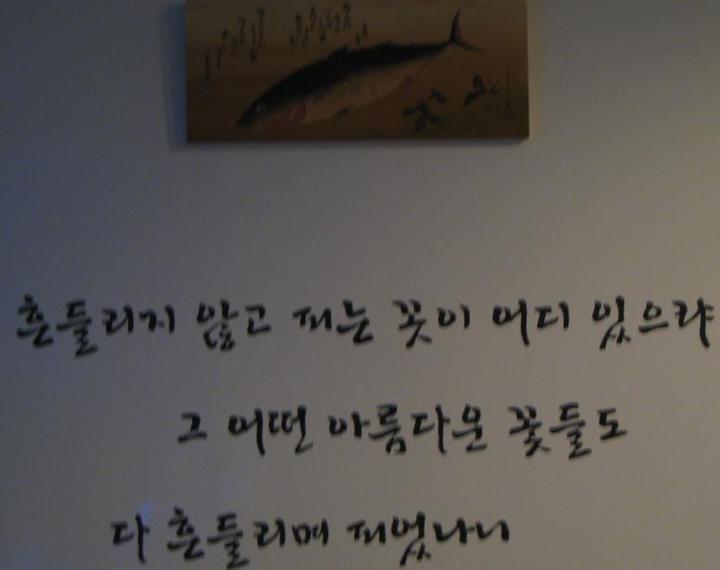 흔들리지 않고 피는 꽃이 어디 있으랴
그 어떤 아름다운 꽃들도
다 흔들리며 피었나니